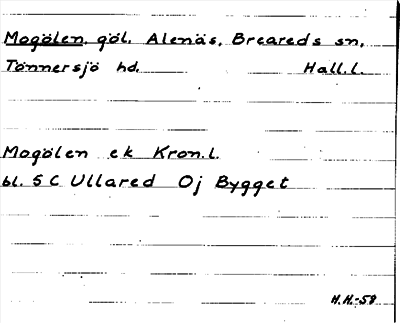 Mogölen, göl, Alenäs, Breareds sn,
Tönnersjö hd. Hall.l.
Mogölen ek Kron.l.
bl. 5 C Ullared Oj Bygget
H.H.-58